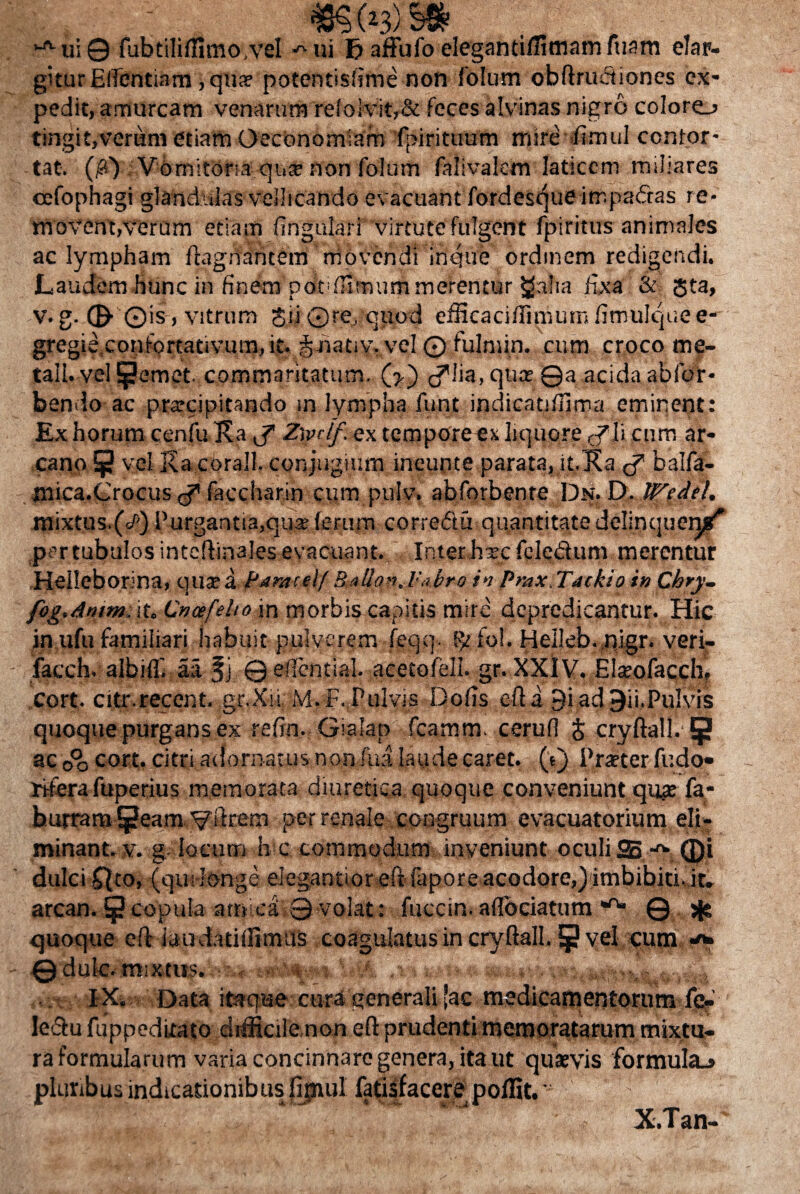 (23)
🜿ui 🜔 ſubtiliſſimo, vel 🜿ui ♄ affuſo elegantiſſimam ſuam elar-
gitur Eſſentiam, quæ potentisſime non ſolum obſtructiones ex-
pedit, amurcam venarum reſolvit, & feces alvinas nigro colore
tingit, verùm etiam Oeconomiam ſpirituum mirè ſimul confor-
tat. (β) Vomitoria quæ non ſolum ſalivalem laticem miliares
œſophagi glandulas vellicando evacuant ſordesque impactas re-
movent, verum etiam ſingulari virtute fulgent ſpiritus animales
ac lympham ſtagnantem movendi inque ordinem redigendi.
Laudem hunc in finem potiſſimum merentur ſalia fixa & ſta,
v. g. 🜕 ☉is, vitrum ☉re, quod efficaciſſimum ſimulque e-
gregiè confortativum, it. nativ. vel ☉ fulmin. cum croco me-
tall. vel ☿emet. commaritatum. (γ) ♂lia, quæ 🜔a acida abſor-
bendo ac præcipitando in lympha ſunt indicatiſſima eminent:
Ex horum cenſu ℞a ♂ Zwelf. ex tempore ex liquore ♂li cum ar-
cano ☿ vel ℞a corall. conjugium ineunte parata, it. ℞a ♂ balſa-
mica. Crocus ♂ ſaccharin cum pulv. abſorbente DN. D. Wedel.
mixtus. (δ) Purgantia, quæ ſerum correctû quantitate delinquens
per tubulos inteſtinales evacuant. Inter hæc ſelectum merentur
Helleborina, quæ à Paracelſ Ballon. Fabro in Prax. Tackio in Chry-
ſog. Anim. it. Cnœfelio in morbis capitis mirè depredicantur. Hic
in uſu familiari habuit pulverem ſeqq. ℞ fol. Helleb. nigr. veri-
ſacch. albiſſ. āā ℥j 🜔 eſſential. acetoſell. gr. XXIV. Elæoſacch.
cort. citr. recent. gr. Xii M. F. Pulvis Doſis eſt à ℈i ad ℈ii. Pulvis
quoque purgans ex reſin. Gialap ſcamm. ceruſſ cryſtall. ☿
ac cort. citri adornatus non ſuâ laude caret. (ε) Præter ſudo-
rifera ſuperius memorata diuretica quoque conveniunt quæ ſa-
burram ☿eam 🜄ſtrem per renale congruum evacuatorium eli-
minant. v. g. locum hîc commodum inveniunt oculi ♋ 🜿 🜕i
dulci to, (qui longè elegantior eſt ſapore ac odore,) imbibiti. it.
arcan. ☿ copula amicâ 🜔 volat: ſuccin. aſſociatum 🜔 ✱
quoque eſt laudatiſſimus coagulatus in cryſtall. ☿ vel cum 🜿
🜔 dulc. mixtus.
IX. Data itaque curâ generali ſac medicamentorum ſe-
lectu ſuppeditato difficile non eſt prudenti memoratarum mixtu-
ra formularum varia concinnare genera, ita ut quævis formula
pluribus indicationibus ſimul ſatisfacere poſſit.
X. Tan-